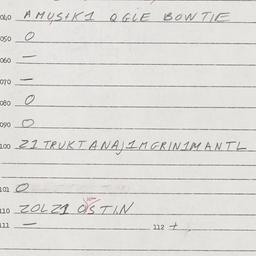 040 AMUSIK1 OGLE BOWTIE
050 O
060 —
070 —
080 O
090 O
100 Z1TRUKTANAJ1MGRIN1MANTL
101 O
110 ZOLZ1 OSTIN
111 — 112 +